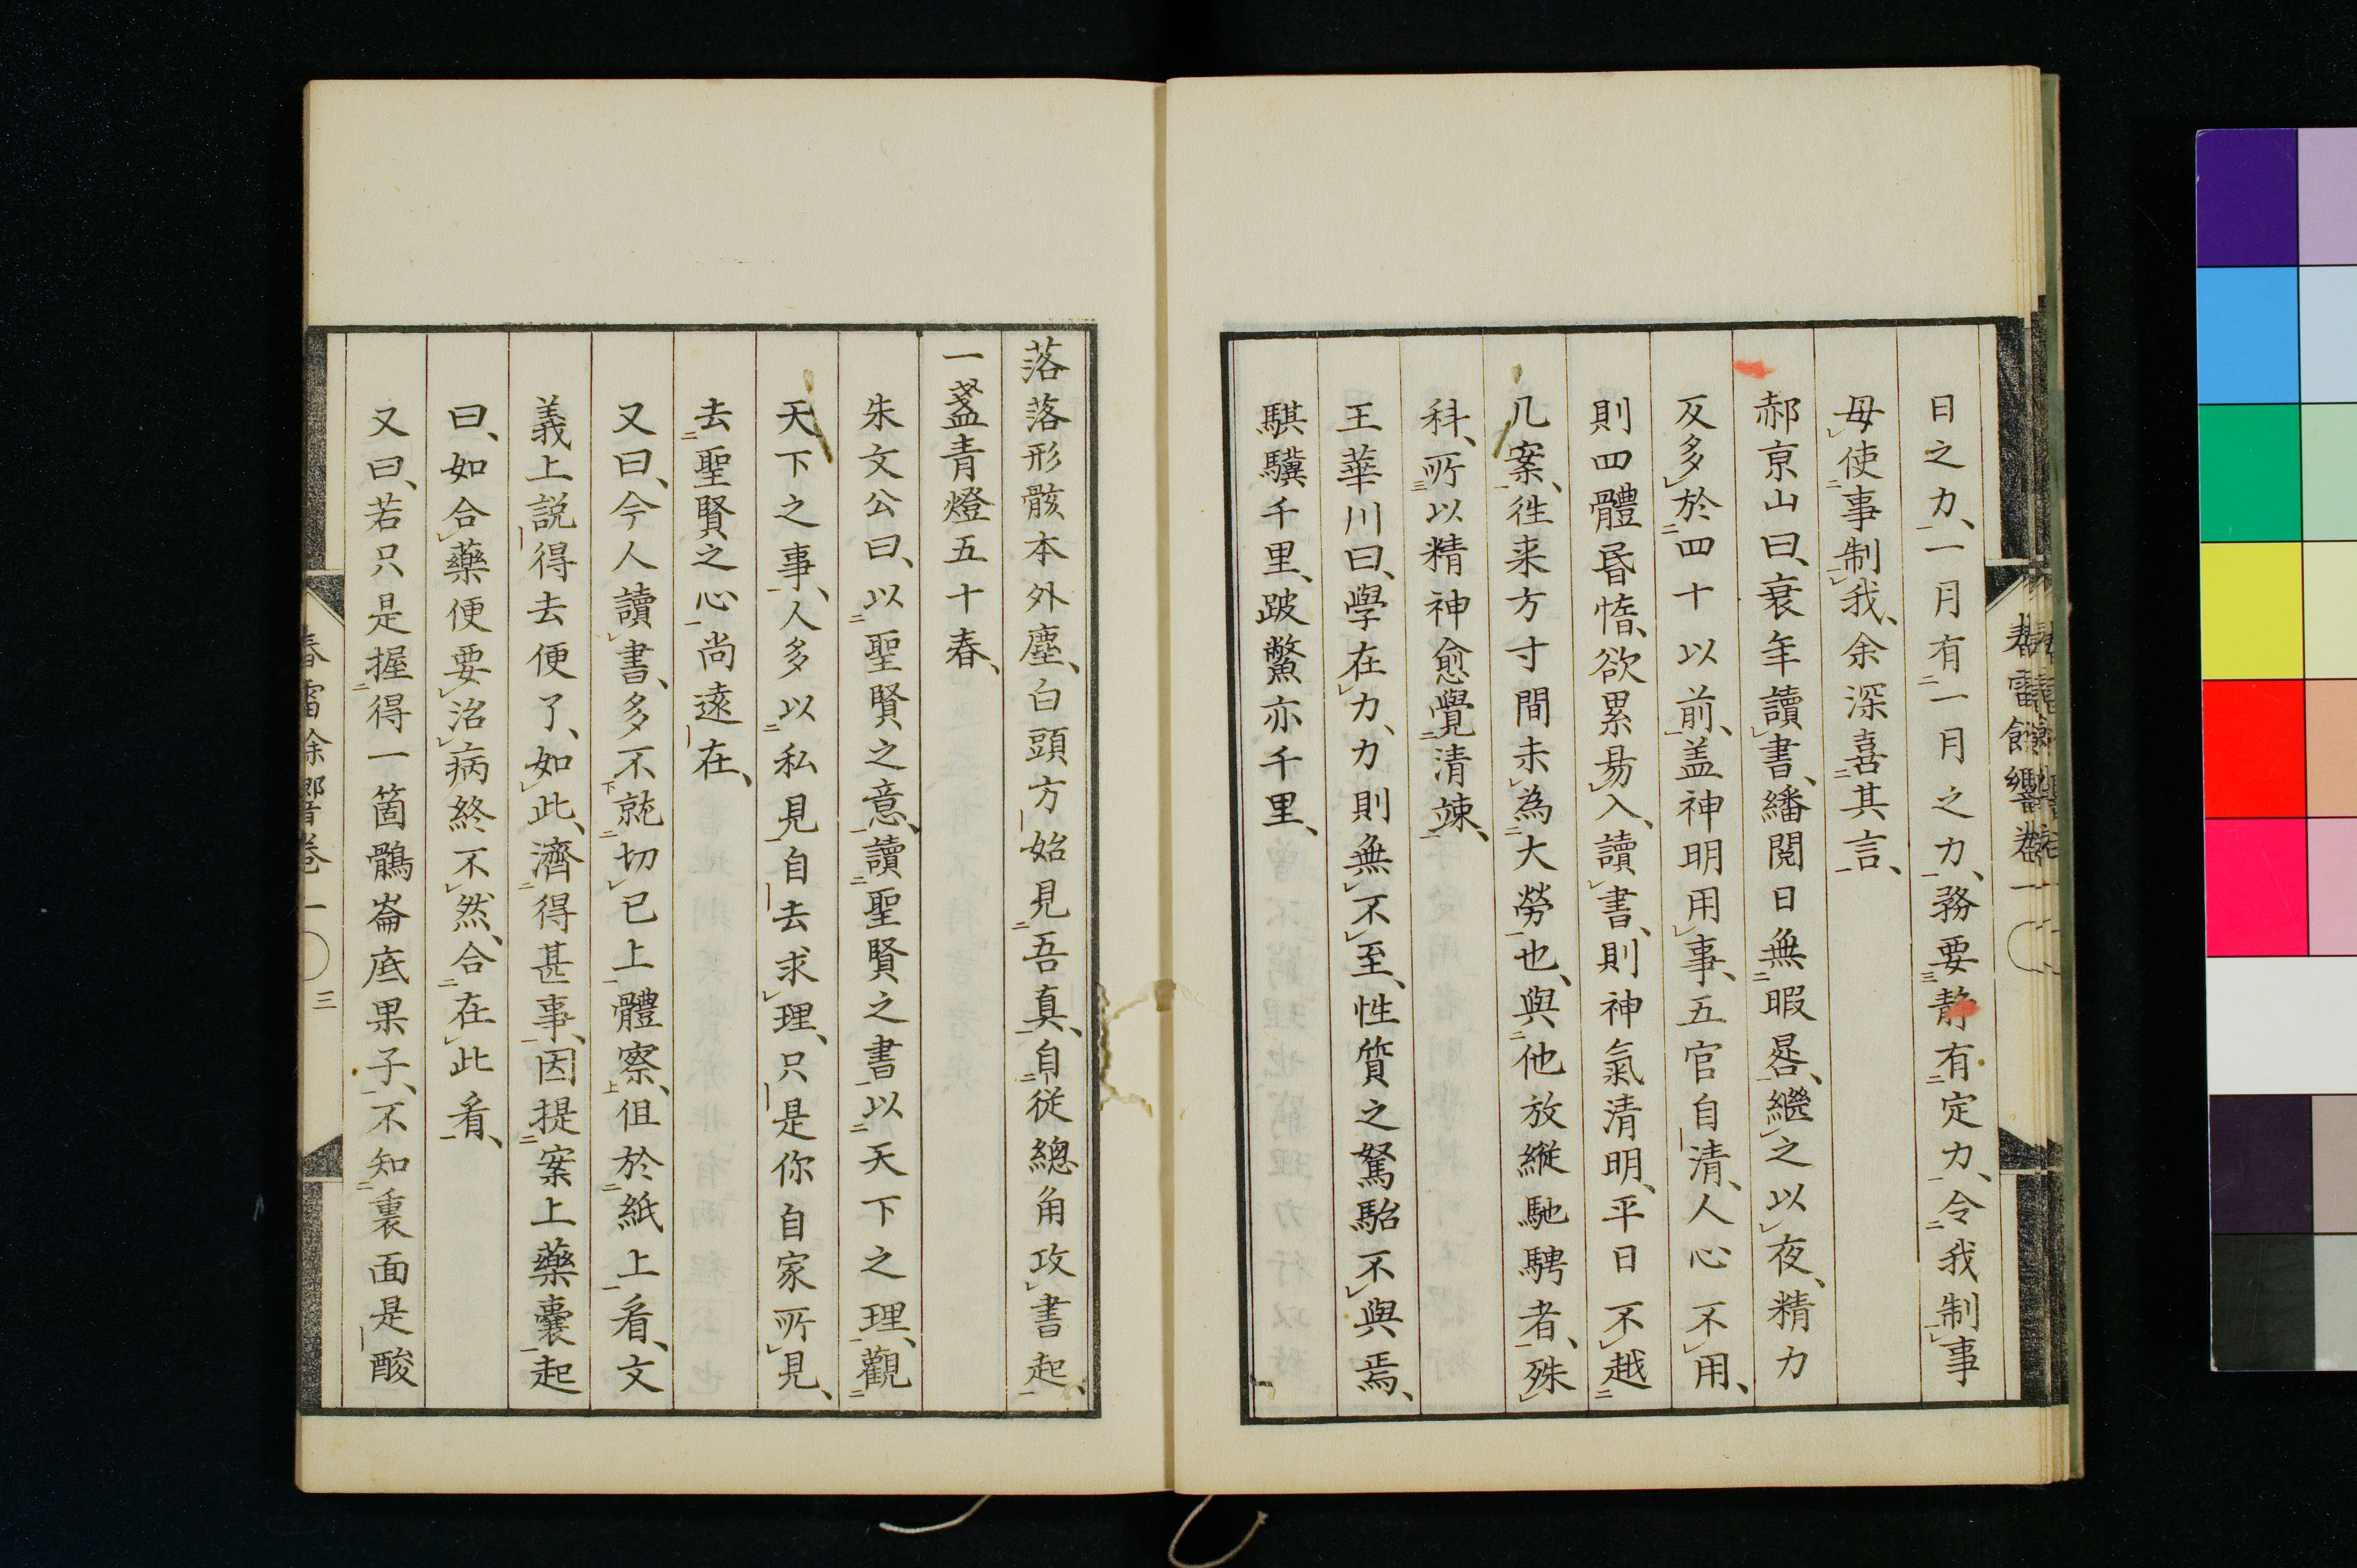 日之力、一月有一月之力、務要靜有定力、令我制事
毋使事制我、余深喜其言、
郝京山曰、衰年讀書、繙閱日無暇晷、繼之以夜、精力
反多於四十以前、蓋神明用事、五官自清、人心不用、
則四體昏惰、欲累易入、讀書、則神氣清明、平日不越
几案、徃来方寸間未為大勞也、與他放縱馳騁者、殊
科、所以精神愈覺清竦、
王華川曰、學在力、力則無不至、性質之駑駘不與焉、
騏驥千里、跛鱉亦千里、
落落形骸本外塵、白頭方始見吾真、自從總角攻書起、
一盞青燈五十春、
朱文公曰、以聖賢之意、讀聖賢之書以天下之理、觀
天下之事、人多以私見自去求理、只是你自家所見、
去聖賢之心尚遠在、
又曰、今人讀書、多不就切已上體察、但於紙上看、文
義上説得去便了、如此、濟得甚事、因提案上藥囊起
曰、如合藥便要治病終不然、合在此看、
又曰、若只是握得一箇鶻崙底果子、不知裏面是酸
春雷餘響卷一
三